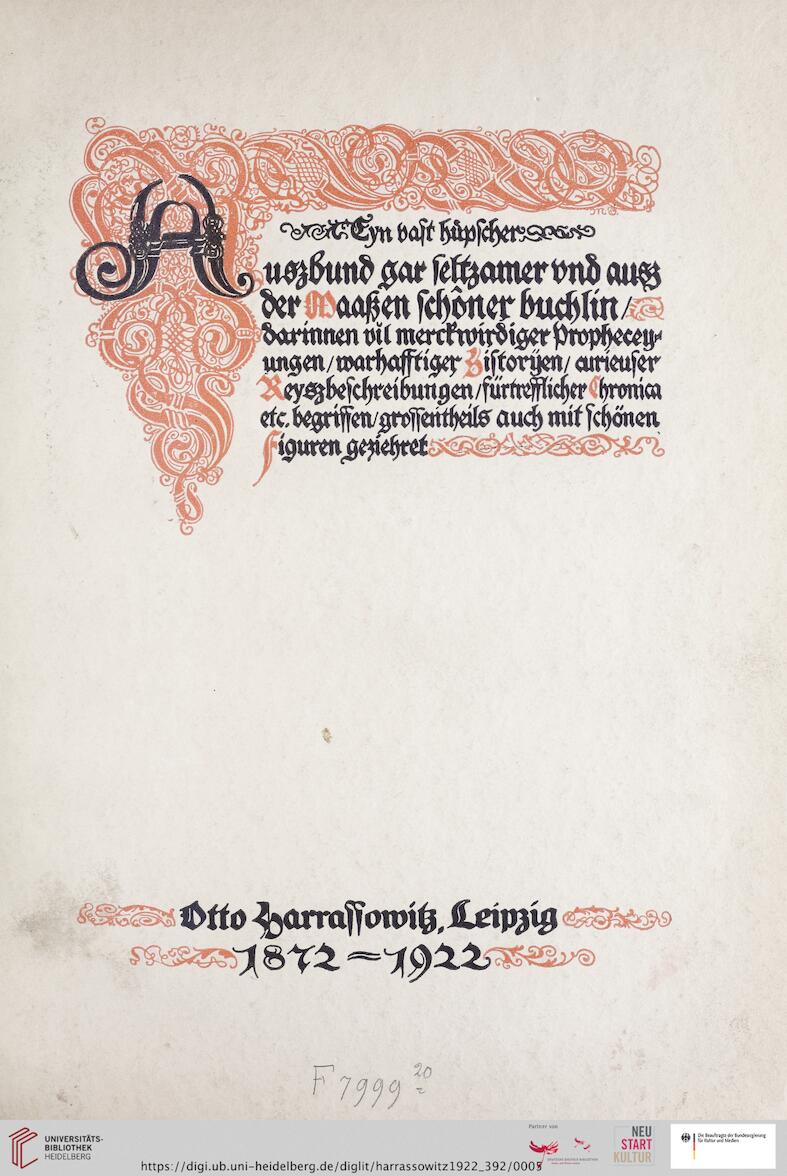 Eyn vast hüpscher
Auszbund gar seltzamer vnd ausz
der Maaßen schôner buchlin /
darinnen vil merckwirdiger Prophecey-
ungen / warhafftiger Historijen / curieuser
Reyszbeschreibungen / fürtrefflicher Chronica
etc. begriffen / grossentheils auch mit schönen
Figuren geziehret
Otto Harrassowitz, Leipzig
1872 = 1922
F 7999 20
UNIVERSITÄTS-
BIBLIOTHEK
HEIDELBERG
https://digi.ub.uni-heidelberg.de/diglit/harrassowitz1922_392/0005
Partner von
DEUTSCHE DIGITALE BIBLIOTHEK
NEU
START
KULTUR
Die Beauftragte der Bundesregierung
für Kultur und Medien